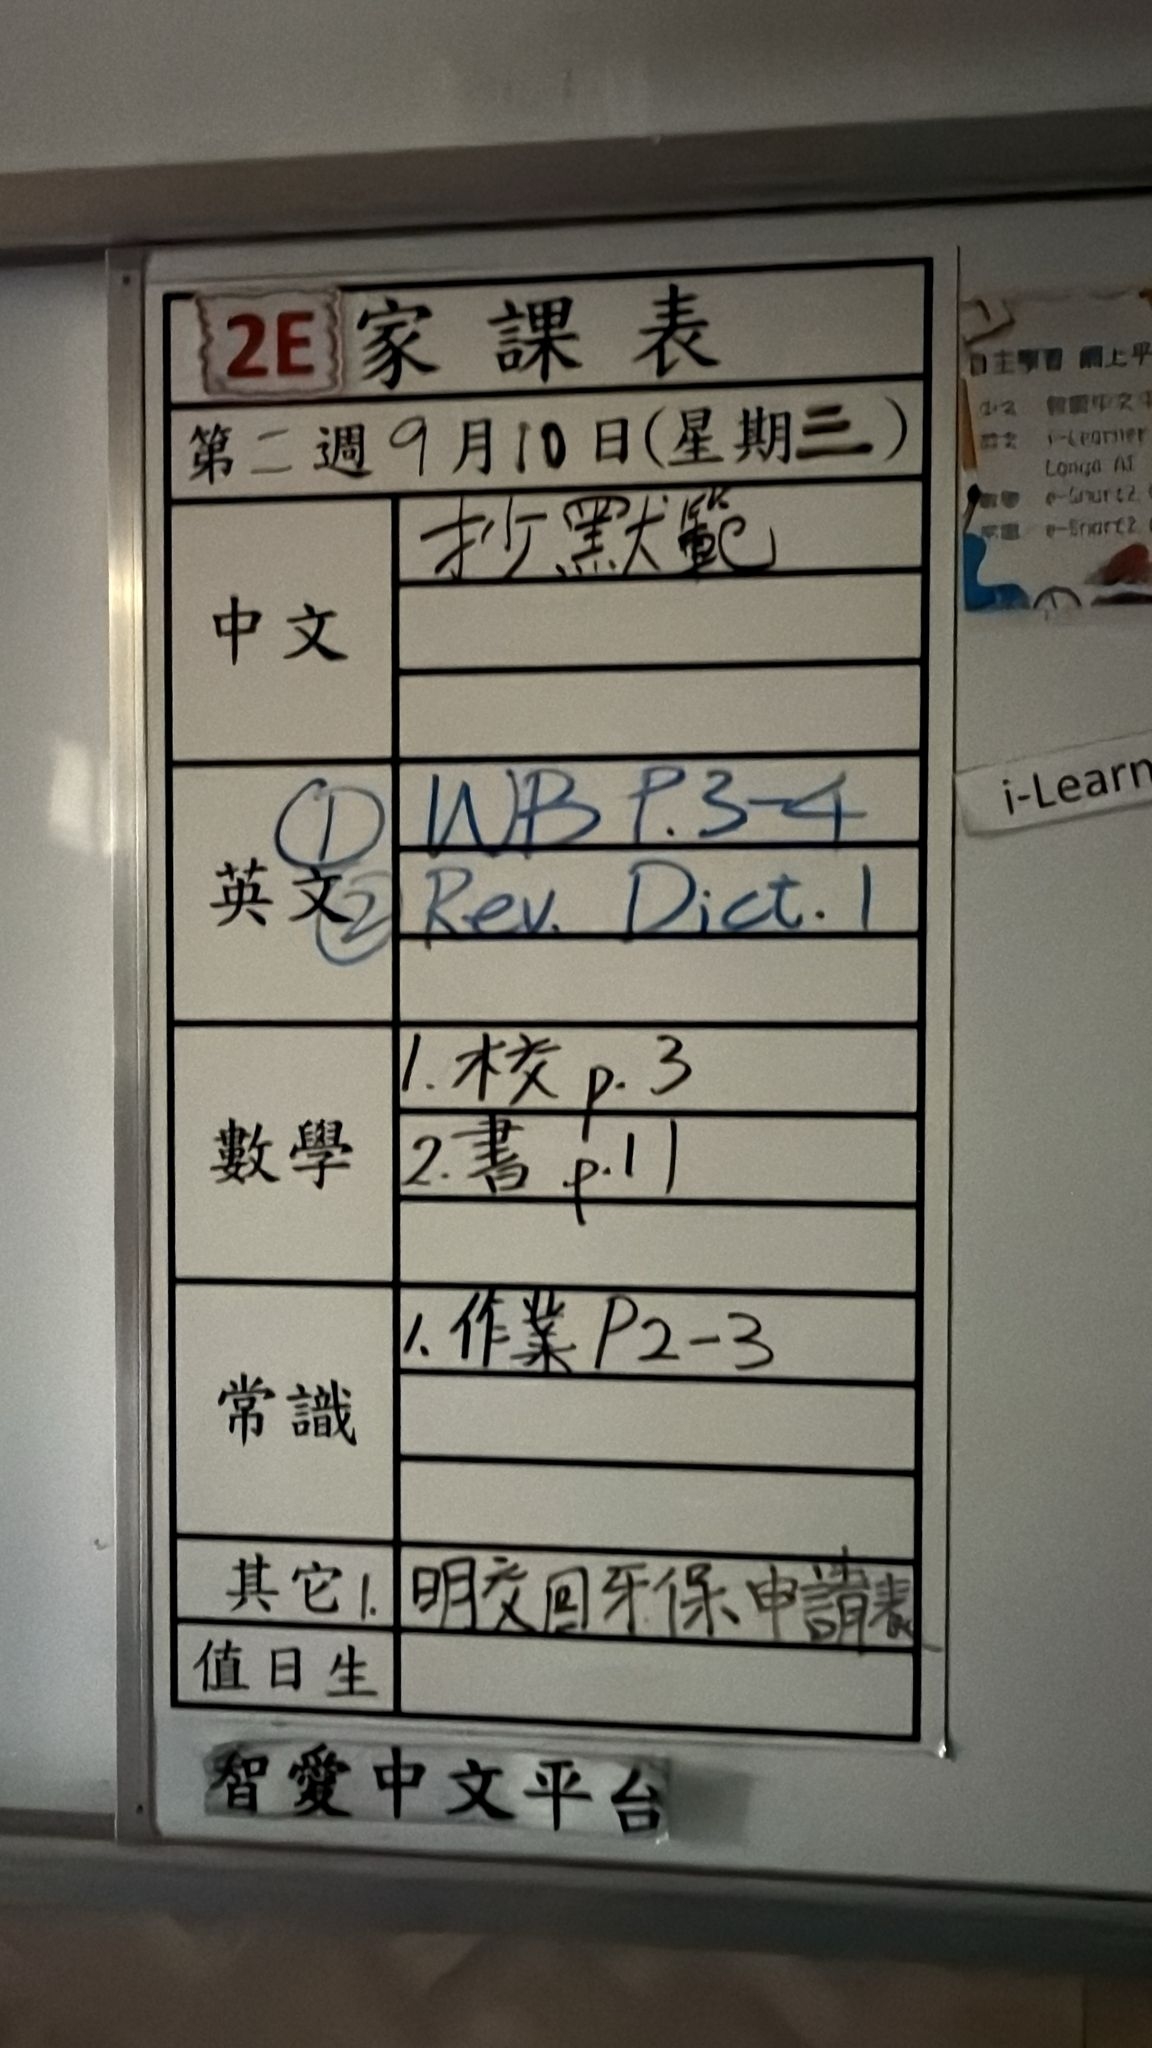 2E 家課表
第二週9月10日(星期三)
中文
抄默範
英文
① WB P.3-4
② Rev. Dict. 1
數學
1. 校 p. 3
2. 書 p. 11
常識
1. 作業 P2-3
其它 1. 明交回牙保申請表
值日生
智愛中文平台
自主學習 網上平
i-Learner
e-Smart2.
e-Smart2.
i-Learn